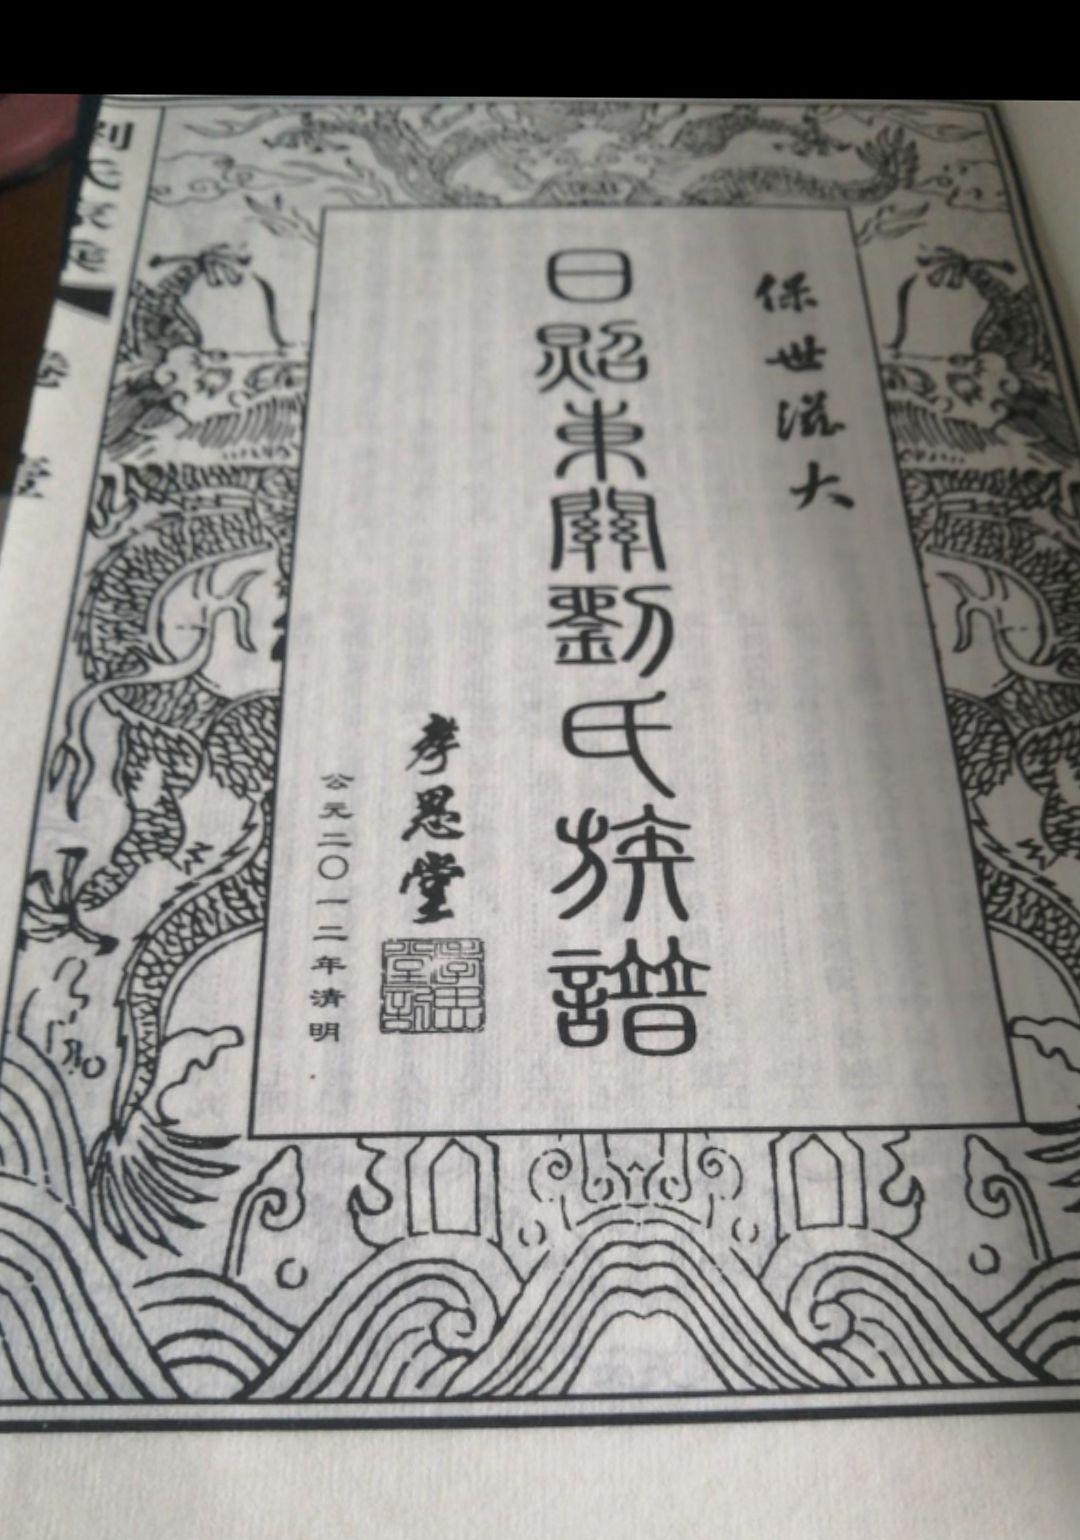 保世滋大
日照東關劉氏族譜
孝思堂
公元二〇一二年清明